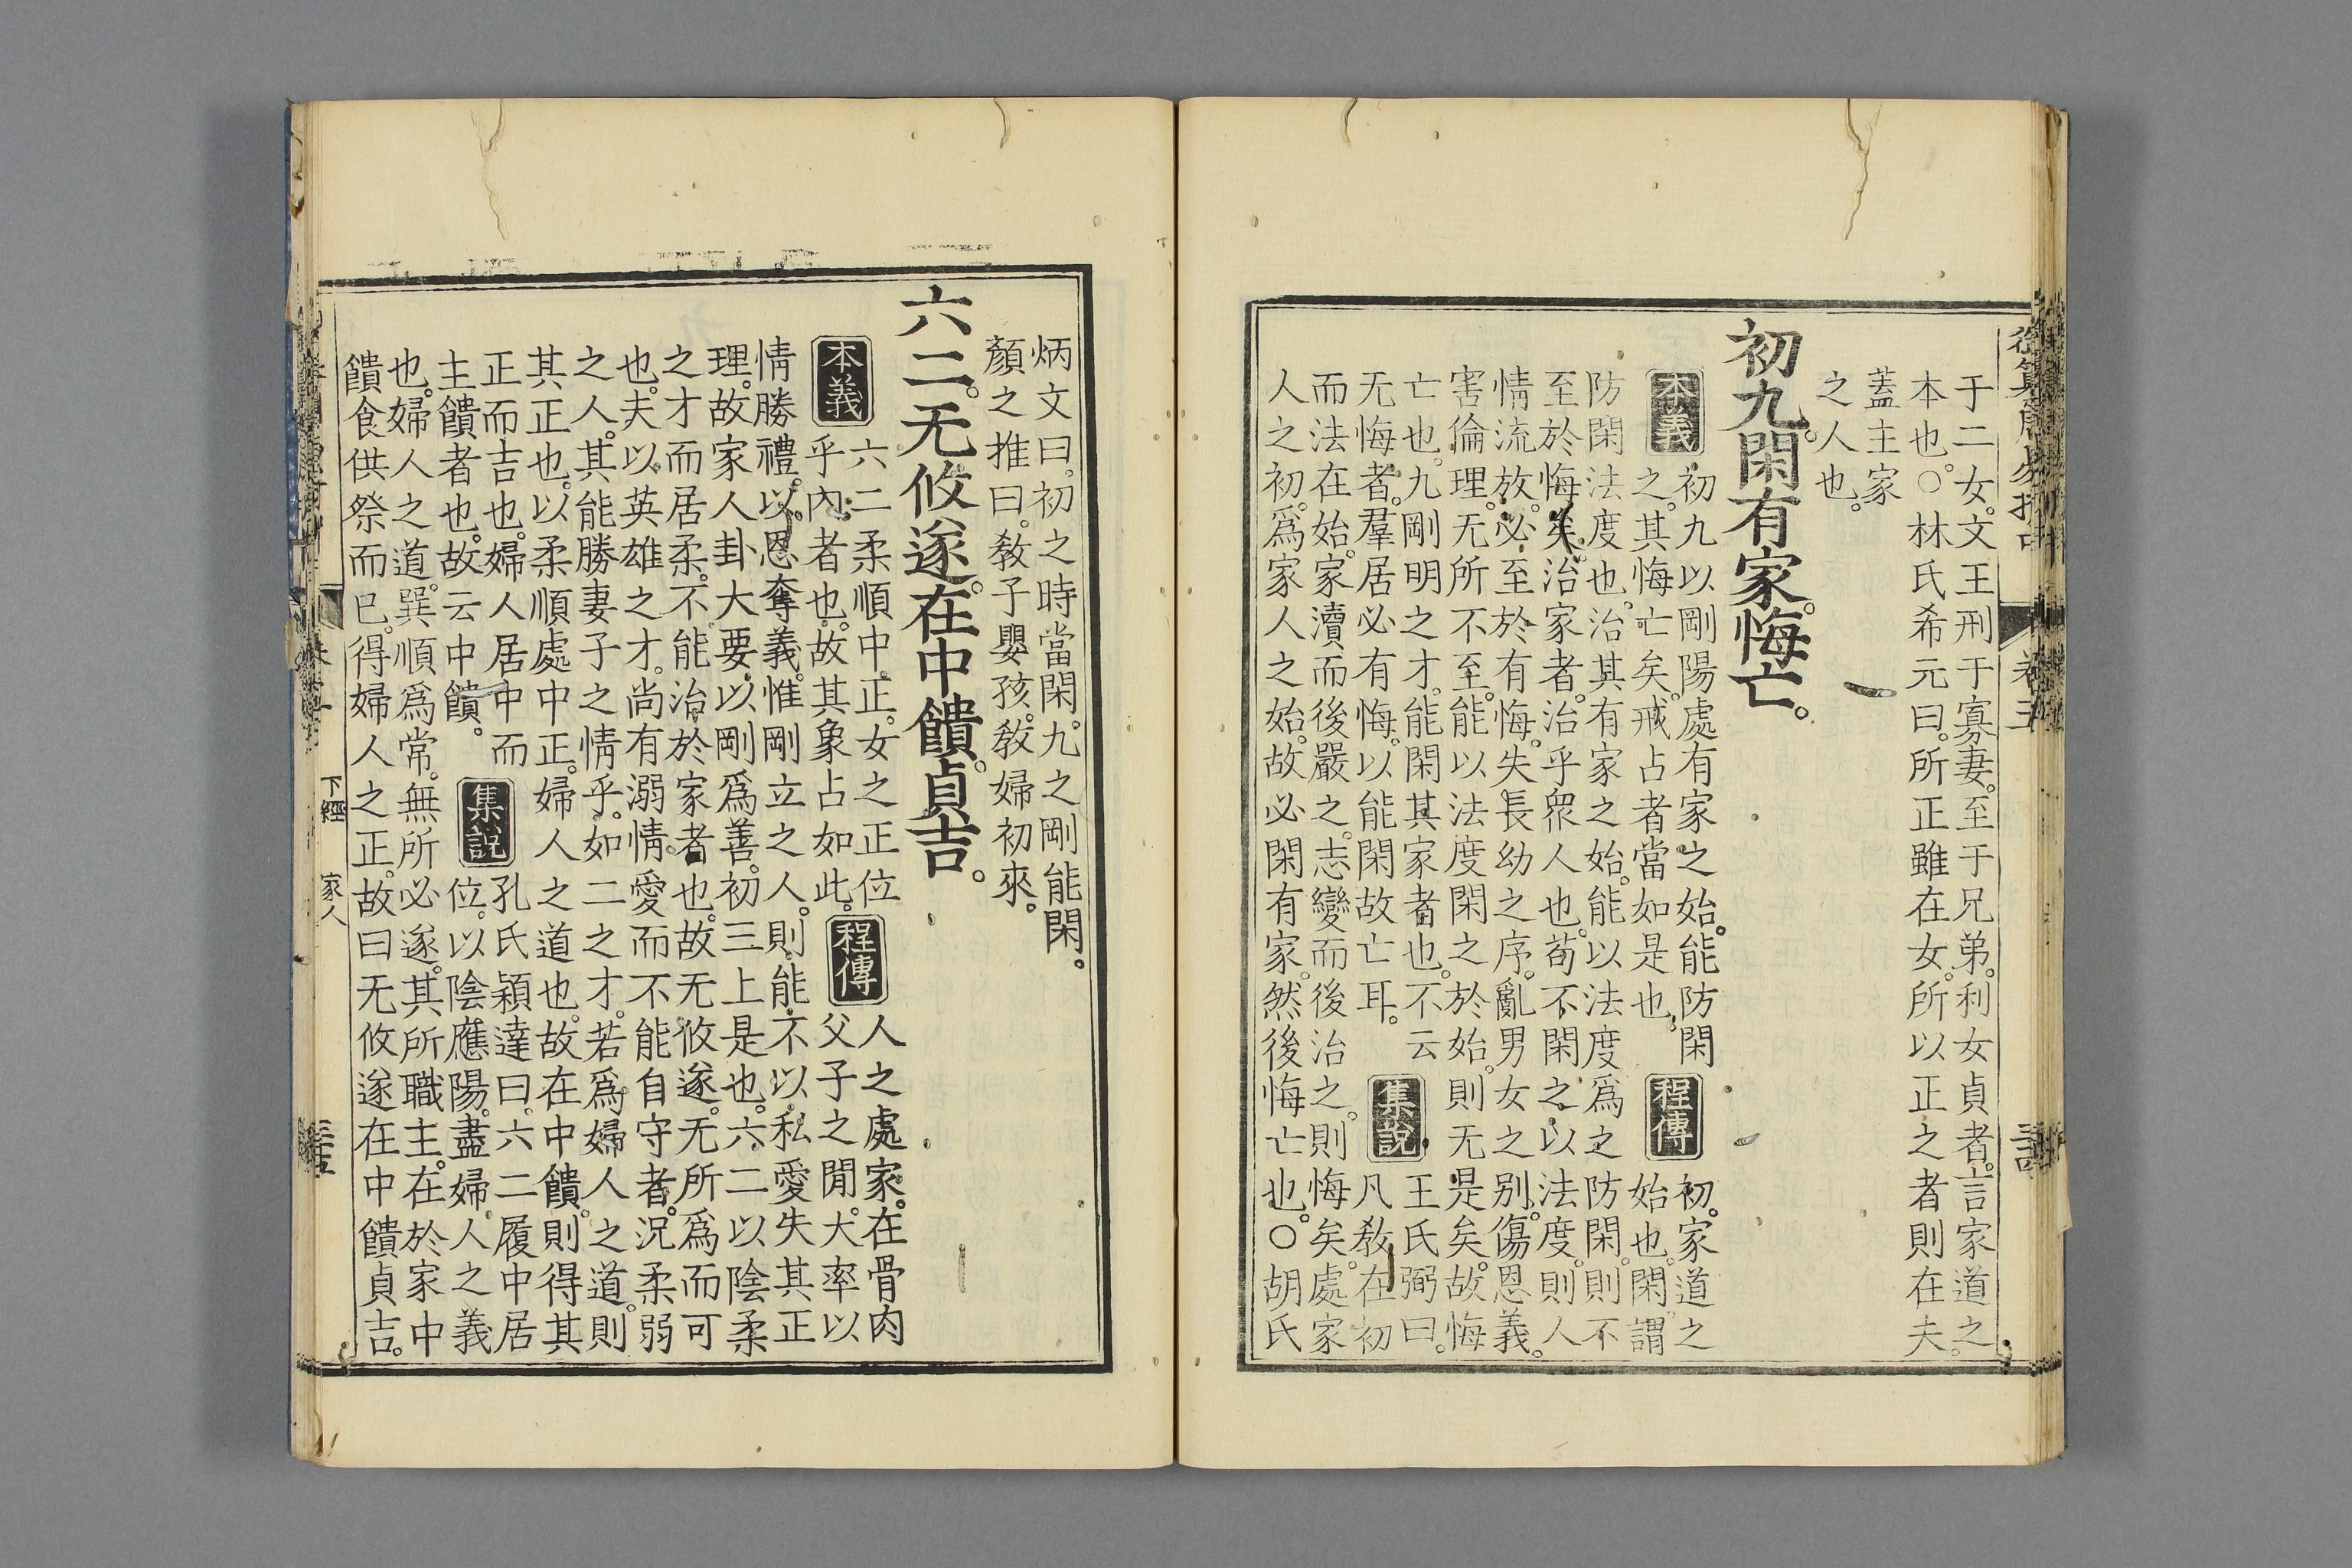 御纂周易折中 卷五
于二女。文王刑于寡妻。至于兄弟。利女貞者。言家道之
本也。○林氏希元曰。所正雖在女。所以正之者則在夫。
蓋主家
之人也。
初九。閑有家。悔亡。
本義
初九以剛陽處有家之始。能防閑
之。其悔亡矣。戒占者當如是也。
程傳
初。家道之
始也。閑。謂
防閑法度也。治其有家之始。能以法度爲之防閑。則不
至於悔矣。治家者。治乎衆人也。苟不閑之以法度。則人
情流放。必至於有悔。失長幼之序。亂男女之別。傷恩義。
害倫理。无所不至。能以法度閑之於始。則无是矣。故悔
亡也。九剛明之才。能閑其家者也。不云
无悔者。羣居必有悔。以能閑故亡耳。
集說
王氏弼曰。
凡敎在初
而法在始。家瀆而後嚴之。志變而後治之。則悔矣。處家
人之初。爲家人之始。故必閑有家。然後悔亡也。○胡氏
炳文曰。初之時當閑。九之剛能閑。
顏之推曰。敎子嬰孩。敎婦初來。
六二。无攸遂。在中饋。貞吉。
本義
六二柔順中正。女之正位
乎內者也。故其象占如此。
程傳
人之處家。在骨肉
父子之閒。大率以
情勝禮。以恩奪義。惟剛立之人。則能不以私愛失其正
理。故家人卦大要以剛爲善。初三上是也。六二以陰柔
之才而居柔。不能治於家者也。故无攸遂。无所爲而可
也。夫以英雄之才。尚有溺情愛而不能自守者。況柔弱
之人。其能勝妻子之情乎。如二之才。若爲婦人之道。則
其正也。以柔順處中正。婦人之道也。故在中饋。則得其
正而吉也。婦人居中而
主饋者也。故云中饋。
集說
孔氏穎達曰。六二履中居
位。以陰應陽。盡婦人之義
也。婦人之道。巽順爲常。無所必遂。其所職主。在於家中
饋食供祭而已。得婦人之正。故曰无攸遂在中饋貞吉。
下經 家人